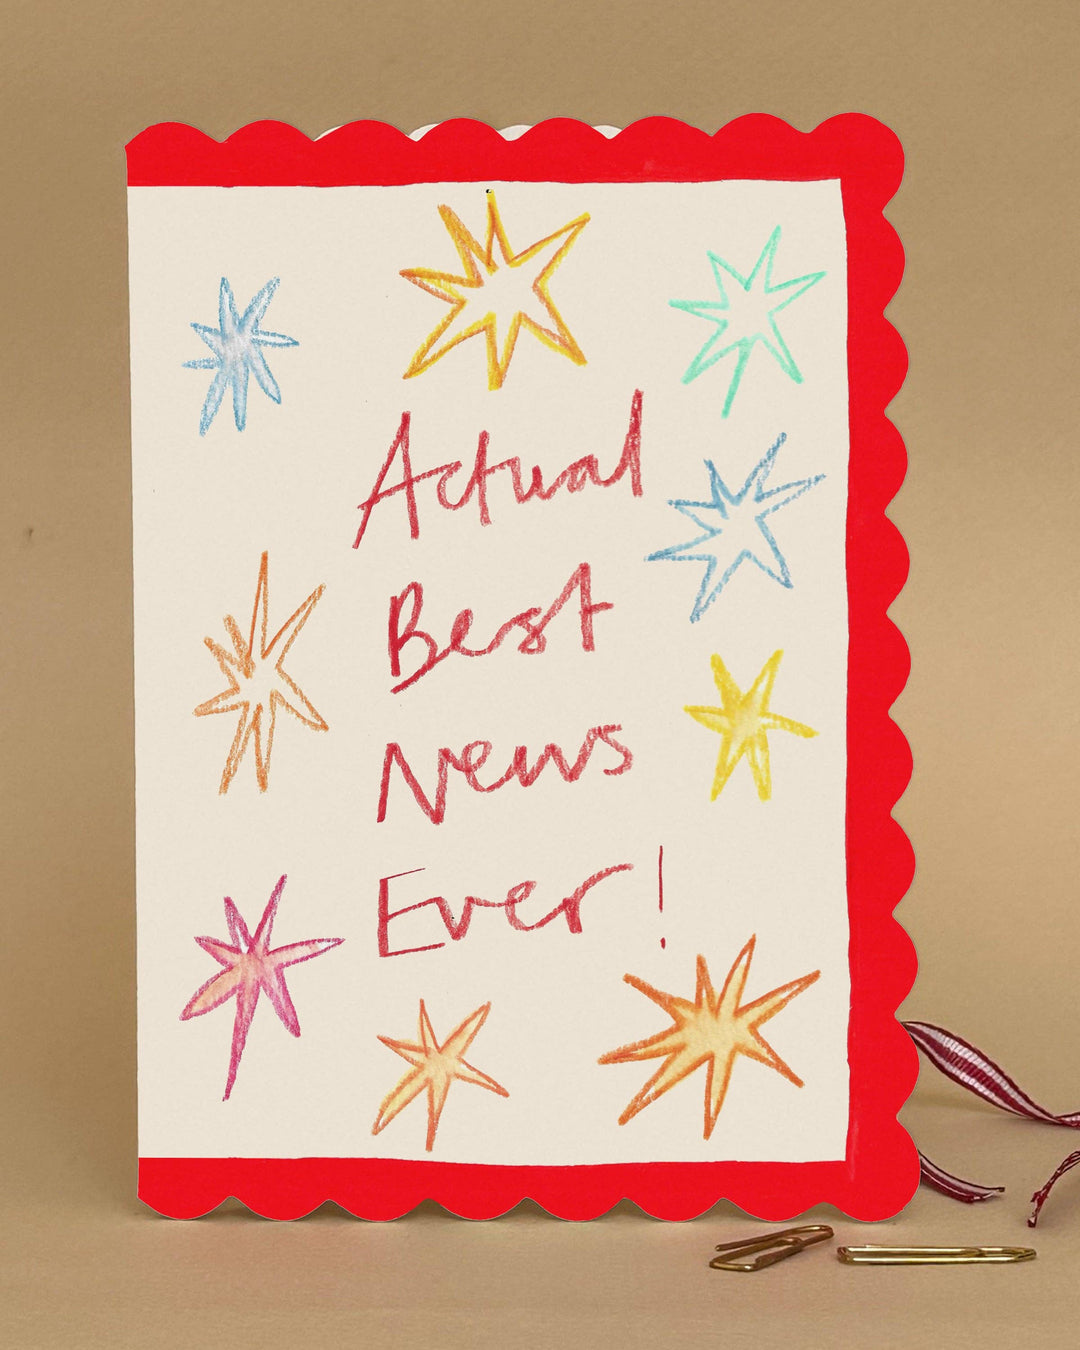 Actual
Best
News
Ever!